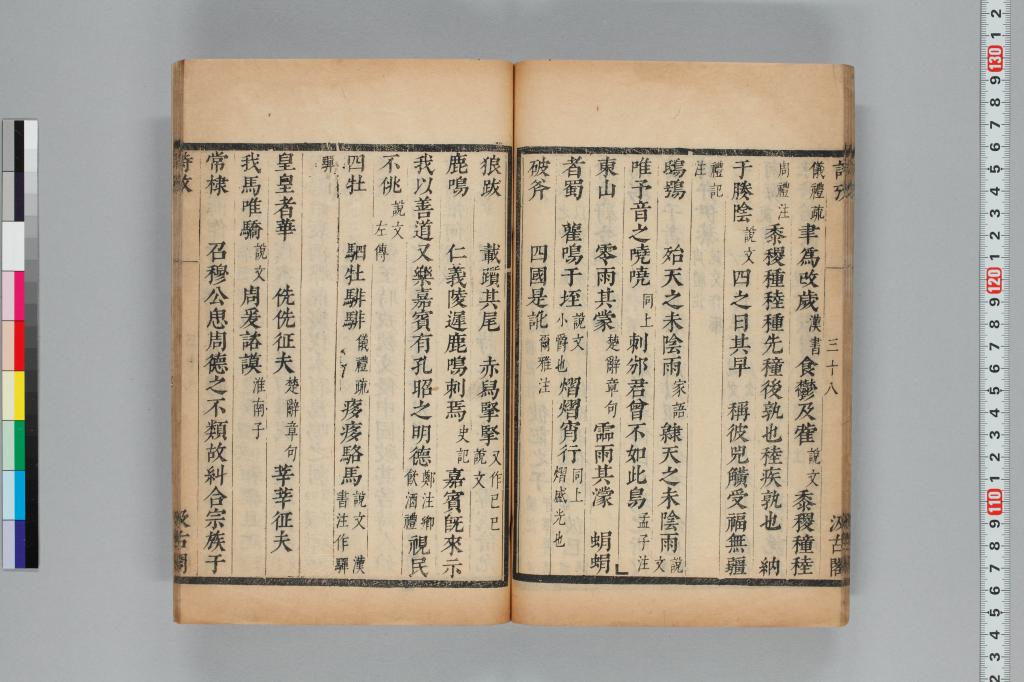 儀禮疏 聿爲改歲 漢書 食鬱及雚 說文 黍稷穜稑
周禮注 黍稷種稑種先穜後孰也稑疾孰也 納
于勝陰 說文 四之日其早 稱彼兕觵受福無疆
禮記注
鴟鴞 殆天之未陰雨 家語 隸天之未陰雨 說文
唯予音之嘵嘵 同上 刺邠君曾不如此鳥 孟子注
東山 零雨其蒙 楚辭章句 霝雨其濛 蜎蜎
者蜀 雚鳴于垤 說文 小爵也 熠熠宵行 同上 熠盛光也
破斧 四國是訛 爾雅注
三十八
汲古閣
狼跋 載躓其尾 赤舄掔掔 說文 又作己己
鹿鳴 仁義陵遲鹿鳴刺焉 史記 嘉賓旣來示
我以善道又樂嘉賓有孔昭之明德 鄭注鄉飮酒禮 視民
不佻 說文 左傳
四牡 駟牡騑騑 儀禮疏 痑痑駱馬 說文 漢書注作驒
驒
皇皇者華 侁侁征夫 楚辭章句 莘莘征夫
我馬唯驕 說文 周爰諮謨 淮南子
常棣 召穆公思周德之不類故糾合宗族于
詩攷
汲古閣